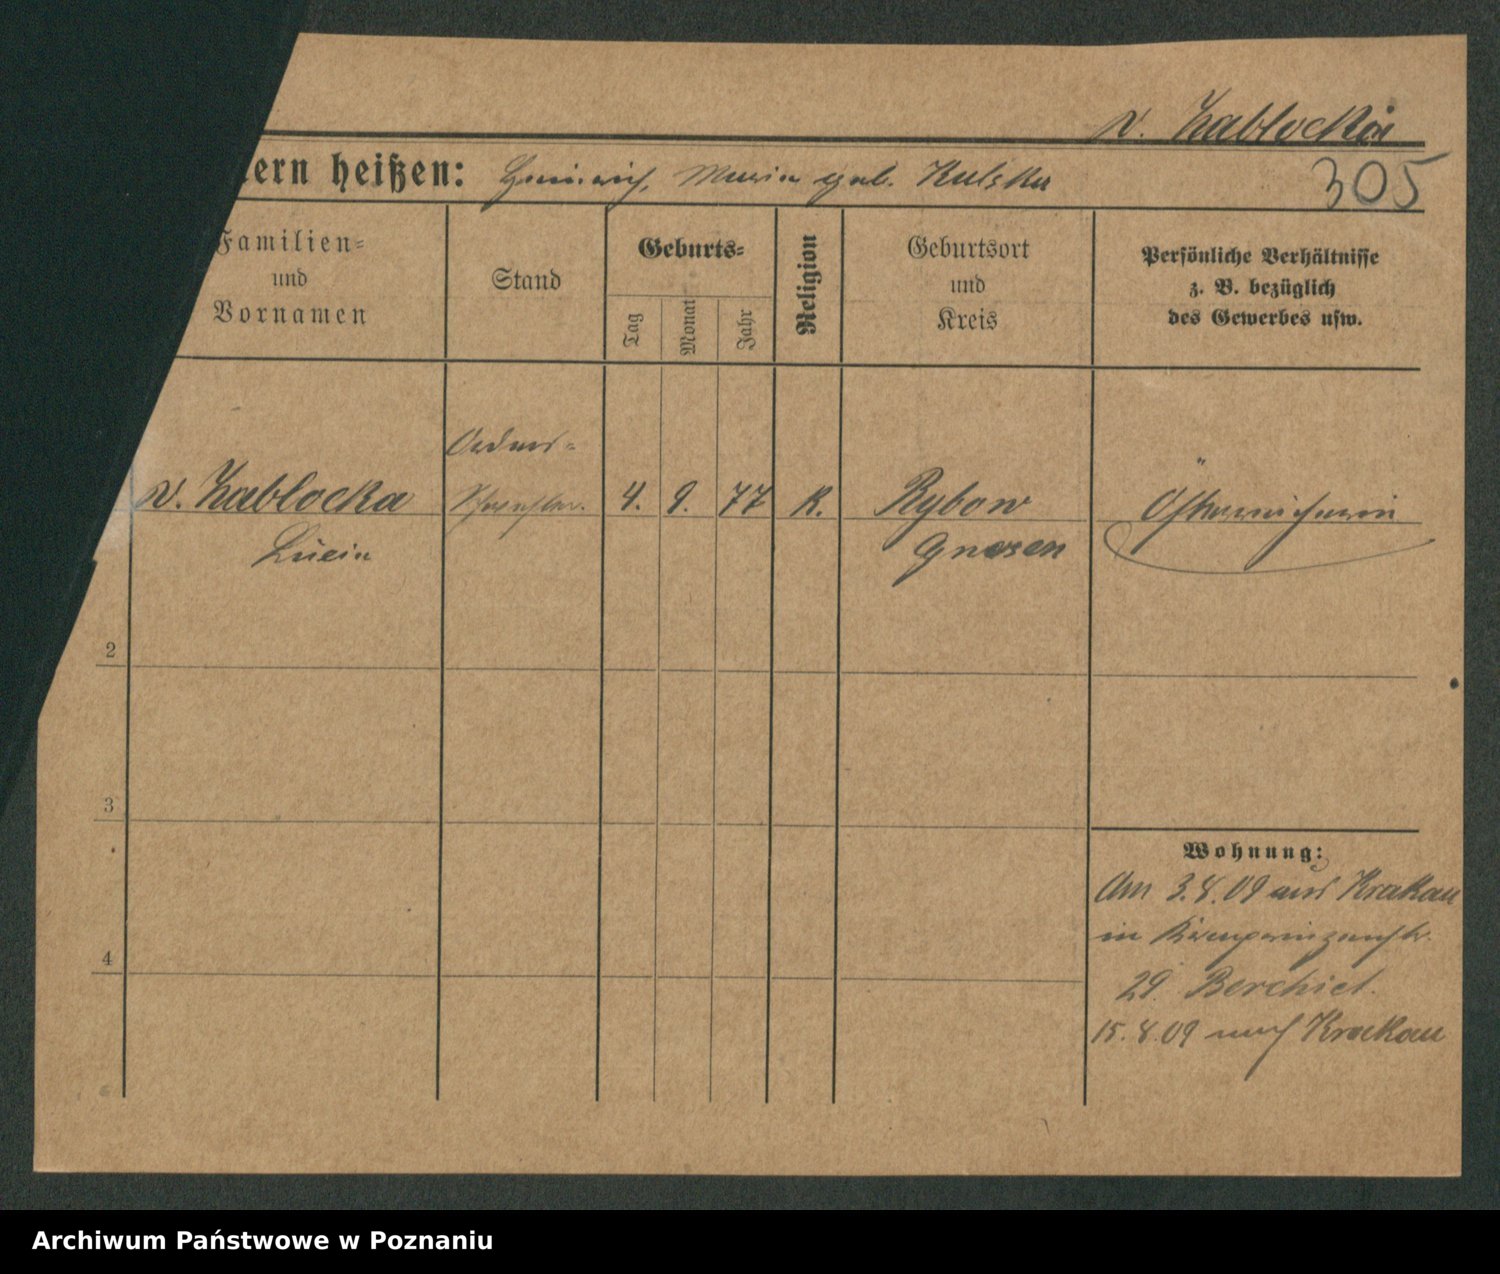 v. Zablocka
305
tern heißen: Heinrich, Maria geb. Kulska
Familien-
und
Vornamen
Stand
Geburts-
Tag
Monat
Jahr
Religion
Geburtsort
und
Kreis
Persönliche Verhältnisse
z. B. bezüglich
des Gewerbes usw.
Ordens-
v. Zablocka
schwester.
4. 9. 77
K.
Rybow
Österreicherin
Luein
Gnesen
2
3
4
Wohnung:
Am 3.8.09 aus Krakau
in
29. Berchiet.
15.8.09 nach Krakau
Archiwum Państwowe w Poznaniu